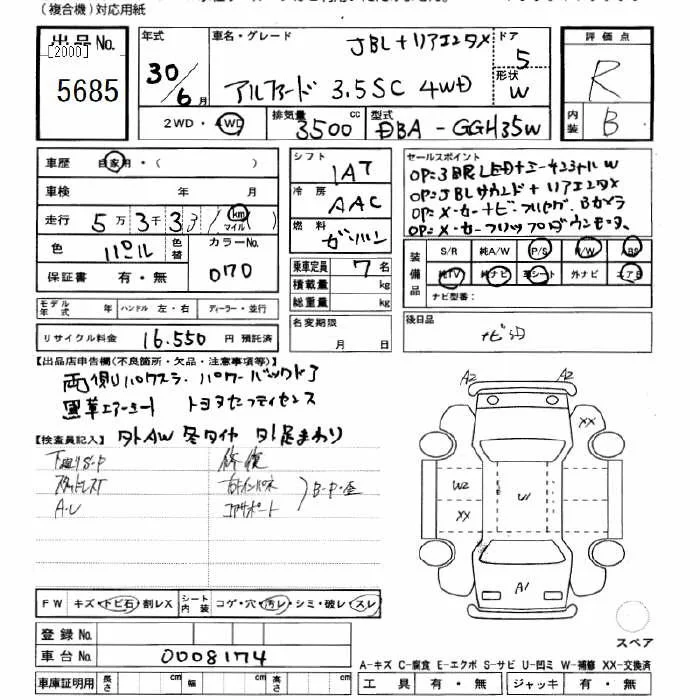 (複合機)対応用紙
出品No.
[2000]
5685
年式
30/6月
車名・グレード
JBL+リアエンタX
アルファード 3.5SC 4WD
ドア
5
形状
W
評価点
R
内装
B
2WD・4WD
排気量
3500 cc
型式
DBA-GGH35W
車歴 自家用・( )
車検 年 月
走行 5万3千33 km マイル
色 パール
色替
カラーNo.
070
保証書 有・無
シフト
IAT
冷房
AAC
燃料
ガソリン
乗車定員 7名
積載量 kg
総重量 kg
セールスポイント
OP=3眼LEDヘッド
OP=JBLサウンド+リアエンタX
装備品
S/R 純A/W P/S P/W ABS
純TV 純ナビ 革シート 外ナビ エアB
ナビ型番:
モデル年式 年
ハンドル 左・右
ディーラー・並行
名変期限
月 日
後日品
リサイクル料金 16.550 円 預託済
【出品店申告欄(不良箇所・欠品・注意事項等)】
両側パワスラ. パワーバックドア
黒革エアーシート トヨタセーフティセンス
【検査員記入】 外AW 冬タイヤ 外足まわり
修復
スタッドレス
コアサポート
B・P・歪
FW キズ・トビ石・割レX
シート内装 コゲ・穴・汚レ・シミ・破レ・スレ
登録No.
車台No. 0008174
車庫証明用 長さ cm 幅 cm 高さ cm
A2 A2
XX
W2
U1
XX
A1
スペア
A-キズ C-腐食 E-エクボ S-サビ U-凹ミ W-補修 XX-交換済
工具 有・無 ジャッキ 有・無